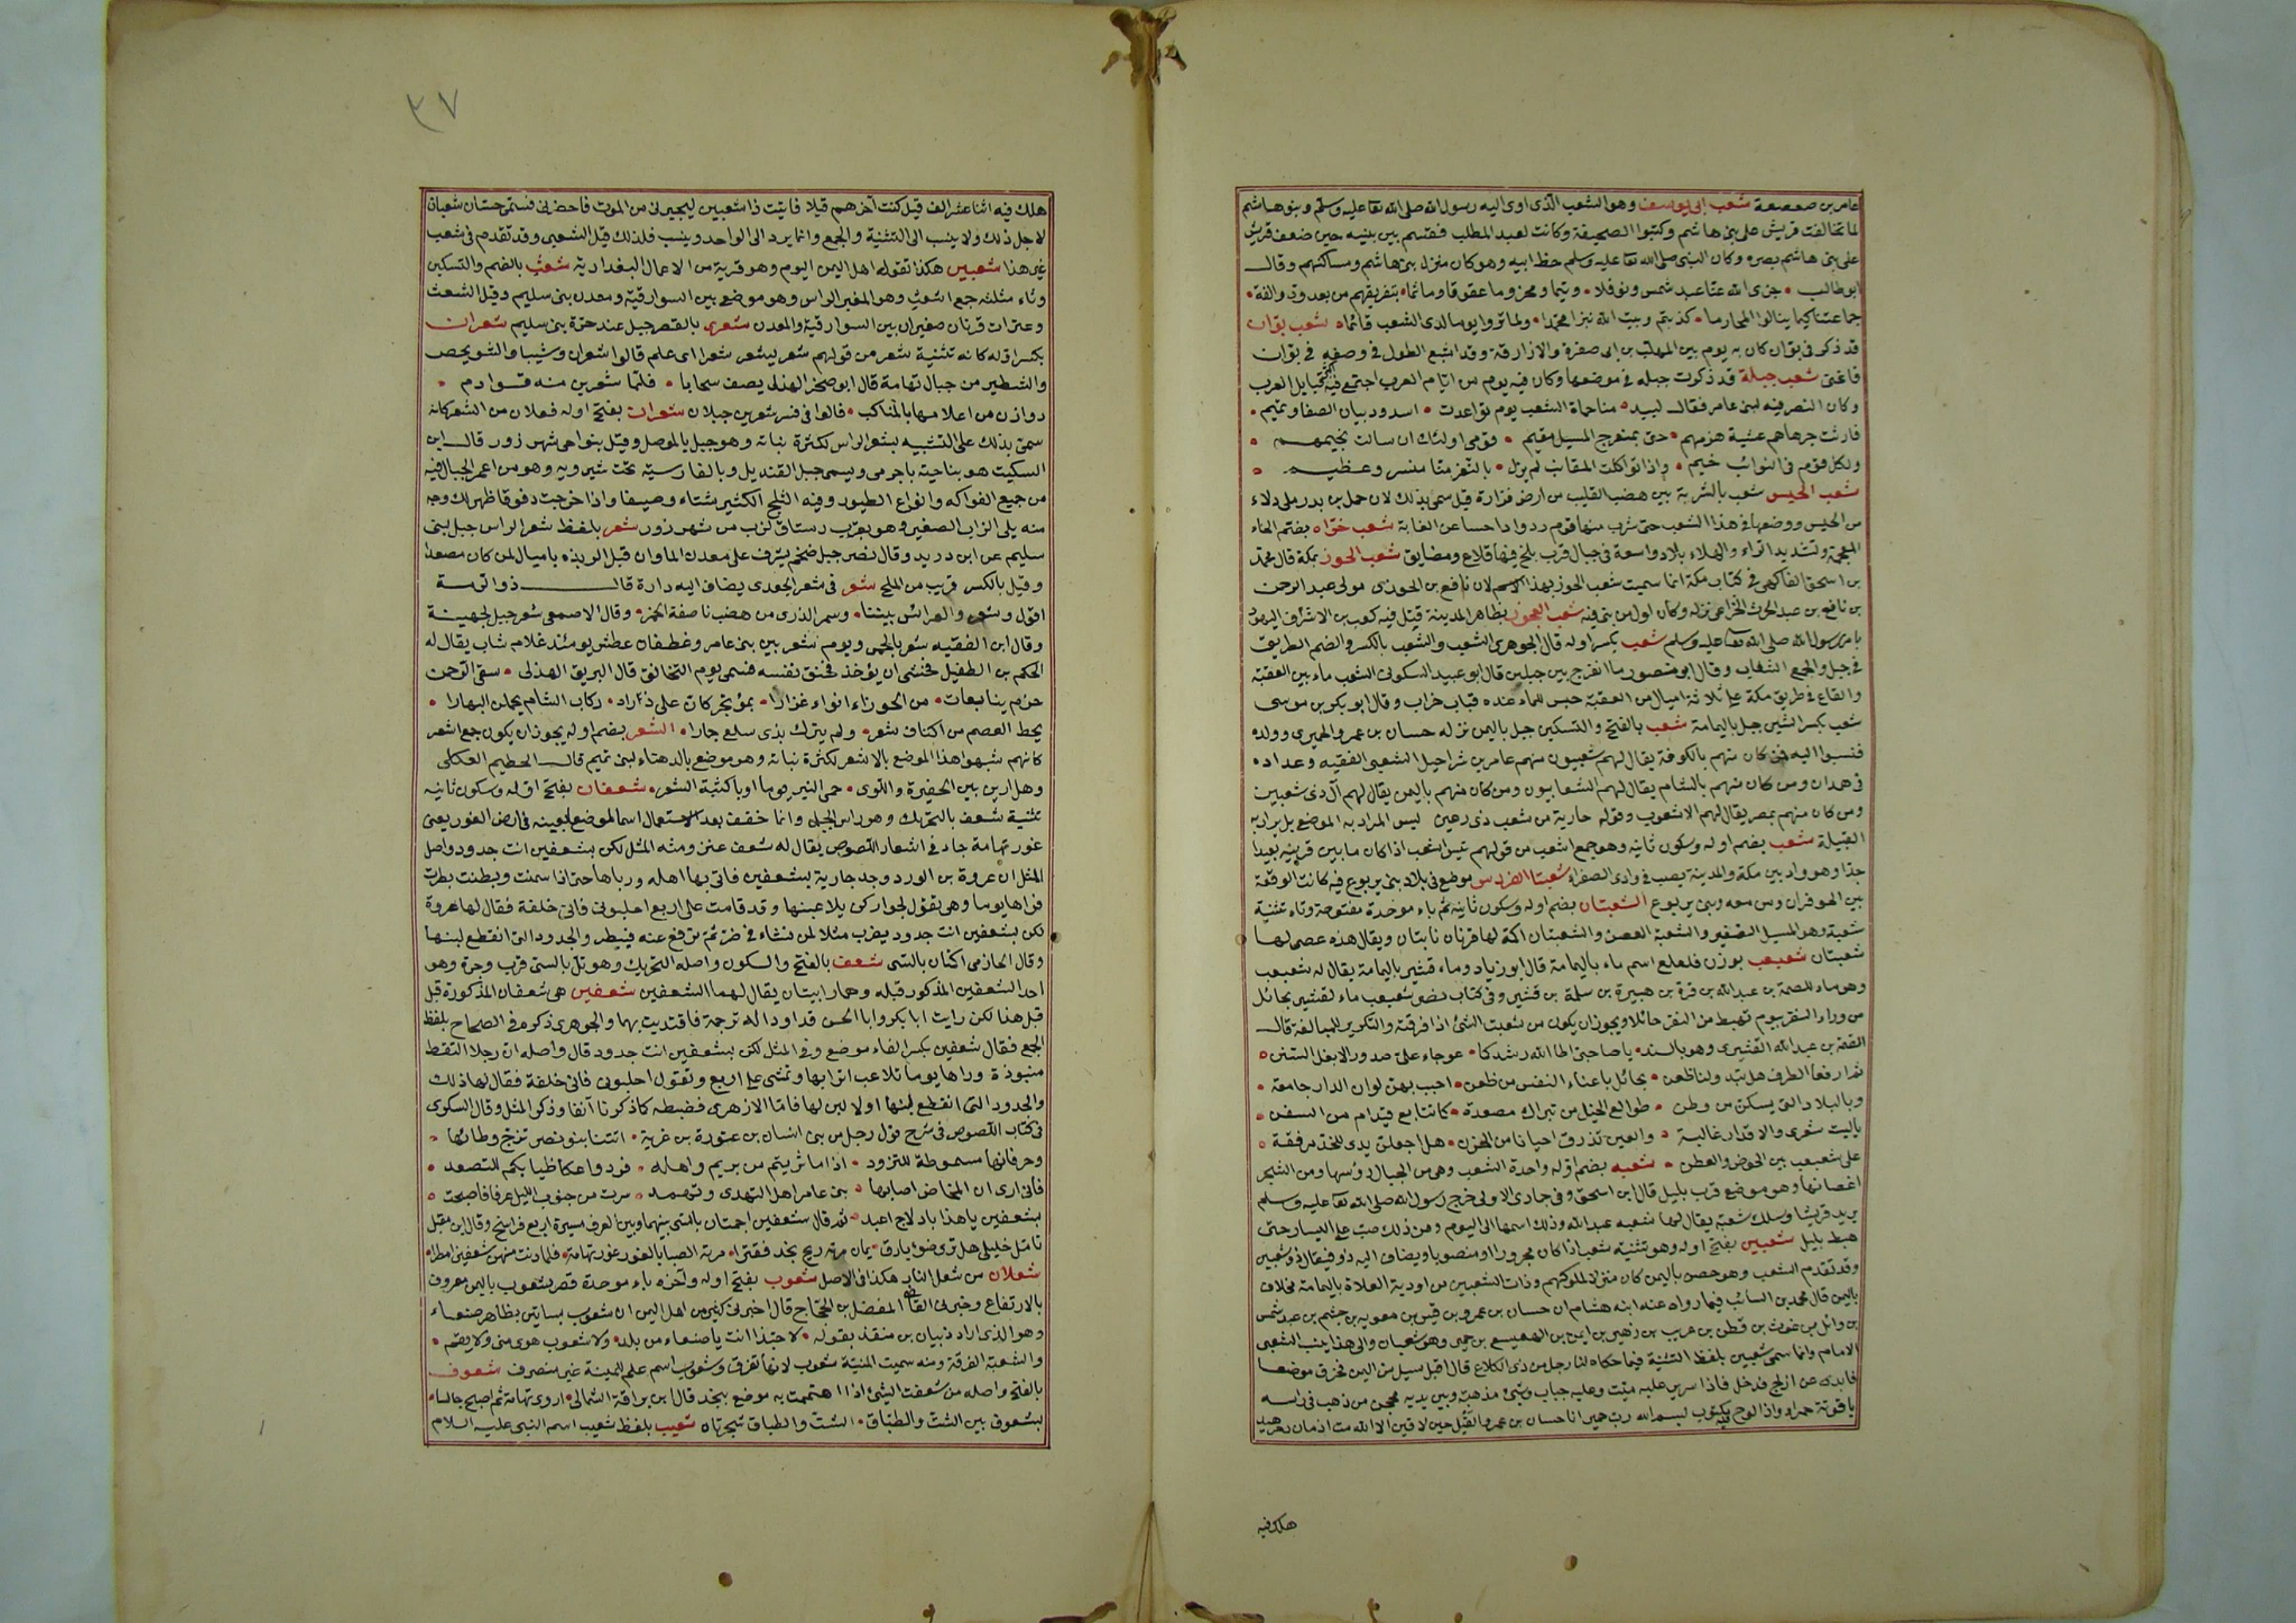 عامر بن صعصعة شعب ابي يوسف وهو الشعب الذى اوى اليه رسول الله صلى الله تعا عليه وسلم وبنو هاشم
لما تحالفت قريش على بنى هاشم وكتبوا الصحيفة وكانت لعبد المطلب فقسم بين بنيه حين ضعف
على بنى هاشم بصره وكان النبى صلى الله تعا عليه وسلم حظ ابيه وهو كان منزل بنى هاشم ومساكنهم وقال
ابو طالب جزى الله عنا عبد شمس ونوفلا وتيما ومخزوما عقوقا وماثما بتفريقهم من بعد ود والفة
جماعتنا كيما ينالوا المحارما كذبتم وبيت الله نبزا محمدا ولما تروا يوما لدى الشعب قائما شعب بوان
قد ذكر فى بوان كان به يوم بين المهلب بن ابى صفرة والازارقة وقد اشبع القول فى وصفه فى بوان
فاغنى شعب جبلة قد ذكرت جبله فى موضعها وكان فيه يوم من ايام العرب اجتمع فيه قبايل العرب
وكان النصر فيه لبنى عامر فقال لبيد مناحماة الشعب يوم تواعدت اسد وذبيان الصفا وتميم
فارتث جرحاهم عشية هزمهم حتى بمنعرج المسيل مقيم وقومى اولئك ان سالت بخيمهم
ولكل قوم فى النوائب خيم واذا تواكلت المقانب لم يزل بالثغر منا منسر وعظيم
شعب الحيس شعب بالشربة بين هضب القليب من ارض فزارة قيل سمى بذلك لان حمل بن بدر ملى دلاء
من الحيس ووضعها فى هذا الشعب حتى شرب منها قوم ردوا داحسا عن الغابة شعب خرّه بضم الخاء
المعجمة وتشديد الراء والهاء بلاد واسعة فى جبال قرب بلخ فيها قلاع ومضايق شعب الخوز بمكة قال محمد
بن اسحق الفاكهى فى كتاب مكة انما سميت شعب الخوز بهذا الاسم لان نافع بن الخوزى مولى عبد الرحمن
بن نافع بن عبد الحرث الخزاعى نزله وكان اول من بنى فيه شعب العجوز بظاهر المدينة قتل فيه كعب بن الاشرف اليهودى
بامر رسول الله صلى الله تعا عليه وسلم شعب بكسر اوله قال الجوهرى الشعب والشعب بالكسر والضم الطريق
فى جبل والجمع الشعاب وقال ابو منصور ما انفرج بين جبلين قال ابو عبيد السكونى الشعب ماء بين العقبة
والقاع فى طريق مكة على ثلاثة اميال من العقبة حبس للماء عنده قباب خراب وقال ابو بكر بن موسى
شعب بكسر الشين جبل باليمامة شعب بالفتح والتسكين جبل باليمن نزله حسان بن عمرو الحميرى وولده
فنسبوا اليه فمن كان منهم بالكوفة يقال لهم شعبيون منهم عامر بن شراحيل الشعبى الفقيه وعداده
فى همدان ومن كان منهم بالشام يقال لهم الشعابيون ومن كان منهم باليمن يقال لهم آل ذى شعبين
ومن كان منهم بمصر يقال لهم الاشعوب وقوله جارية من شعب ذى رعين ليس المراد به الموضع بل يراد به
القبيلة شعب بضم اوله وسكون ثانيه وهو جمع اشعب من قولهم تيس اشعب اذا كان ما بين قرنيه بعيدا
جدا وهو واد بين مكة والمدينة يصب فى وادى الصفراء شعبتا الفردس موضع فى بلاد بنى يربوع فيه كانت الوقعة
بين الحوفزان ومن معه وبنى يربوع الشعبتان بضم اوله وسكون ثانيه ثم باء موحدة مفتوحة وتاء تثنية
شعبة وهو المسيل الصغير والشعبة الغصن والشعبتان اكمة لها قرنان نابتان ويقال هذه عصى لها
شعبتان شعبعب بوزن فلعلع اسم ماء باليمامة قال ابو زياد وماء قشير باليمامة يقال له شعبعب
وهو ماء للصمة بن عبد الله بن قرة بن هبيرة بن سلمة بن قشير وفى كتاب نصر شعبعب ماء لقشير بحائل
من وراء النفر بيوم تهبط من النفر حائلا ويجوز ان يكون من شعبت الشئ اذا فرقته والتكرير للمبالغة قال
الصمة بن عبد الله القشيرى وهو بالسند يا صاحبى اطال الله رشدكما عوجا على صدور الابغل السنن
ثم ارفعا الطرف هل تبدو لنا ظعن بحائل يا عناء النفس من ظعن احبب بهن لو ان الدار جامعة
وبالبلاد التى يسكن من وطن طوالع الخيل من تبراك مصعدة كما تتابع قيدام من السفن
ياليت شعرى والاقدار غالبة والعين تذرق احيانا من الحزن هل اجعلن يدى للخد مرفقة
على شعبعب بين الحوض والعطن شعبه بضم اوله واحدة الشعب وهى من الجبال رؤسها ومن الشجر
اغصانها وهو موضع قرب يليل قال ابن اسحق وفى جمادى الاولى خرج رسول الله صلى الله تعا عليه وسلم
يريد قريشا وسلك شعبة يقال لها شعبه عبد الله وذلك اسمها الى اليوم ومن ذلك صب على اليسار حتى
هبط بليل شعبين بفتح اوله وهو تثنيه شعب اذا كان مجرورا او منصوبا ويضاف اليه ذو فيقال ذو شعبين
وقد تقدم الشعب وهو حصن باليمن كان منزلا لملوكهم وذات الشعبين من اودية العلاة باليمامة مخلاف
باليمن قال محمد بن السائب فيما رواه عنه ابنه هشام ان حسان بن عمرو بن قيس بن معويه بن جشم بن عبد شمس
بن وائل بن غوث بن قطن بن عريب بن زهير بن ايمن بن الهميسع بن حمير وهو شعبان والى هذا ينسب الشعبى
الامام وانما سمى شعبين بلفظ التثنية فيما حكاه لنا رجل من ذى الكلاع قال اقبل سيل من اليمن فخرق موضعا
فابدى عن ازج فدخل فاذا سرير عليه ميت وعليه جباب وشى مذهبه وبين يديه محجن من ذهب فى راسه
ياقوتة حمراء واذا لوح فيه مكتوب بسم الله رب حمير انا حسان بن عمرو القيل حين لا قيل الا الله مت ازمان زهيد
هلك فيه
٣٧
هلك فيه اثنا عشر الف قيل كنت آخرهم قيلا فاتيت ذا شعبين ليجيرنى من الموت فاحضرنى فسمى حسان شعبان
لاجل ذلك ولا ينسب الى التثنية والجمع وانما يرد الى الواحد وينسب فلذلك قيل الشعبى وقد تقدم فى شعب
غير هذا شعبين هكذا تقوله اهل اليمن اليوم وهو قرية من الاعمال البغدادية شعث بالضم والتسكين
وثاء مثلثه جمع اشعث وهو المغبر الراس وهو موضع بين السوارقية ومعدن بنى سليم وقيل الشعث
وعنزات قرنان صغيران بين السوارقية والمعدن شعرى بالقصر جبل عند حرة بنى سليم شعران
بكسر اوله كانه تثنية شعر من قولهم شعر يشعر شعرا اى علم قالوا شعران وشيبا والشويحص
والشطير من جبال تهامة قال ابو صخر الهذلى يصف سحابا فلما شعرين منه قوادم
دوازن من اعلامها بالمناكب قالوا فى فسر شعرين جبلان شعران بفتح اوله فعلان من الشعر كانه
سمى بذلك على التشبيه بشعر الراس لكثرة نباته وهو جبل بالموصل وقيل بنواحى شهر زور قال ابن
السكيت هو بناحية باجرمى ويسمى جبل القنديل وبالفارسية تخت شيرويه وهو من اعمر الجبال فيه
من جميع الفواكه وانواع الطيور وفيه الثلج الكثير شتاء وصيفا واذا خرجت دقوقا ظهر لك وجه
منه يلى الزاب الصغير وهو بقرب رستاق الزب من شهر زور شعر بلفظ شعر الراس جبل لبنى
سليم عن ابن دريد وقال نصر جبل ضخم يشرف على معدن الماوان قبل الربذه باميال لمن كان مصعدا
وقيل بالكسر قريب من الملح شعر فى شعر الجعدى يضاف اليه دارة قال ذو الرمة
اقول وشعر والعرائس بيننا وسمر الذرى من هضب ناصفة الحمر وقال الاصمعى شعر جبل لجهينة
وقال ابن الفقيه شعر بالحمى ويوم شعر بين بنى عامر وغطفان عطش يومئذ غلام شاب يقال له
الحكم بن الطفيل فخشى ان يؤخذ فخنق نفسه فسمى يوم التخانق قال البريق الهذلى سقى الرحمن
حزم ينابعات من الجوزاء انواء غزارا بمرتجز كان على ذراه ركاب الشام يحملن البهارا
يحط العصم من اكناف شعر ولم يترك بذى سلع حمارا الشعر بضم اوله يجوز ان يكون جمع اشعر
كانهم شبهوا هذا الموضع بالاشعر لكثرة نباته وهو موضع بالدهناء لبنى تميم قال الخطيم العكلى
وهل ارين بين الحفيرة واللوى حمى النير يوما او باكثبة الشعر شعفان بفتح اوله وسكون ثانيه
تثنية شعف بالتحريك وهو راس الجبل وانما خفف بعد الاستعمال اسما لموضع بعينه فى ارض الغور يعنى
غور تهامة جاء فى اشعار اللصوص يقال له شعف عنز ومنه المثل لكن بشعفين انت جدود واصل
المثل ان عروة بن الورد وجد جارية بشعفين فاتى بها اهله ورباها حتى اذا سمنت وبطنت بطرت
فراها يوما وهى تقول لجوار كن يلاعبنها وقد قامت على اربع احلبونى فانى خلفة فقال لها عروة
لكن بشعفين انت جدود يضرب مثلا لمن نشاء فى ضر ثم ترفع عنه فيبطر والجدود التى انقطع لبنها
وقال الحازمى اكنان بالسى شعف بالفتح والسكون واصله التحريك وهو تل بالسى قرب وجرة وهو
احد الشعفين المذكور قبله وهما رابيتان يقال لهما الشعفين شعفين هى شعفان المذكورة قبل
قبل هذا لكن رايت ابا بكر وابا الحسن قد اورداله ترجمة فاقتديت بهما والجوهرى ذكره فى الصحاح بلفظ
الجمع فقال شعفين بكسر الفاء موضع وفى المثل لكن بشعفين انت جدود قال واصله ان رجلا التقط
منبوذة وراها يوما تلاعب اترابها وتمشى على اربع وتقول احلبونى فانى خلفة فقال لها ذلك
والجدود التى انقطع لبنها اولا لبن لها فاما الازهرى فضبطه كما ذكرنا آنفا وذكر المثل وقال السكرى
فى كتاب اللصوص فى شرح قول رجل من بنى انسان بن عتورة بن غزية اتتنا بنو نصر تزجى وطابها
وحرفانها مسموطة للتزود اذا ما ثريتم من بريم واهله فردوا عكاظيا بكم للتصعد
فانى ارى ان المخاض اصابها بنى عامر اهل التهدى وتهمد سرت من جنوب الليل عرفا فاصبحت
بشعفين يا هذا بادلاج اعبد ثم قال شعفين اجمتان بالسى بينهما وبين العرف مسيرة اربع فراسخ وقال ابن مقبل
تامل خليلى هل ترى ضوء بارق يمان مرته ريح نجد ففترا مرته الصبا بالغور غور تهامة فلما دنت منهن شعفين امطرا
شعلان من شعل النار هكذا فى الاصل شعوب بفتح اوله وآخره باء موحدة قصر شعوب باليمن معروف
بالارتفاع وخبرنى القاضى المفضل بن الحجاج قال اخبرنى كثير من اهل اليمن ان شعوب بساتين بظاهر صنعاء
وهو الذى اراد ذبيان بن منقذ بقوله لا حبذا انت يا صنعاء من بلد ولا شعوب هوى منى ولا نقم
والشعبة الفرقة ومنه سميت المنية شعوب لانها تفرق وشعوب اسم علم للمنية غير منصرف شعوف
بالفتح واصله من شعفت الشئ اذا اهتممت به موضع بنجد قال ابن براقة الثمالى اروى تهامة ثم اصبح جالسا
بشعوف بين الشث والطباق الشث والطباق شجرتاه شعيب بلفظ شعيب اسم النبى عليه السلام